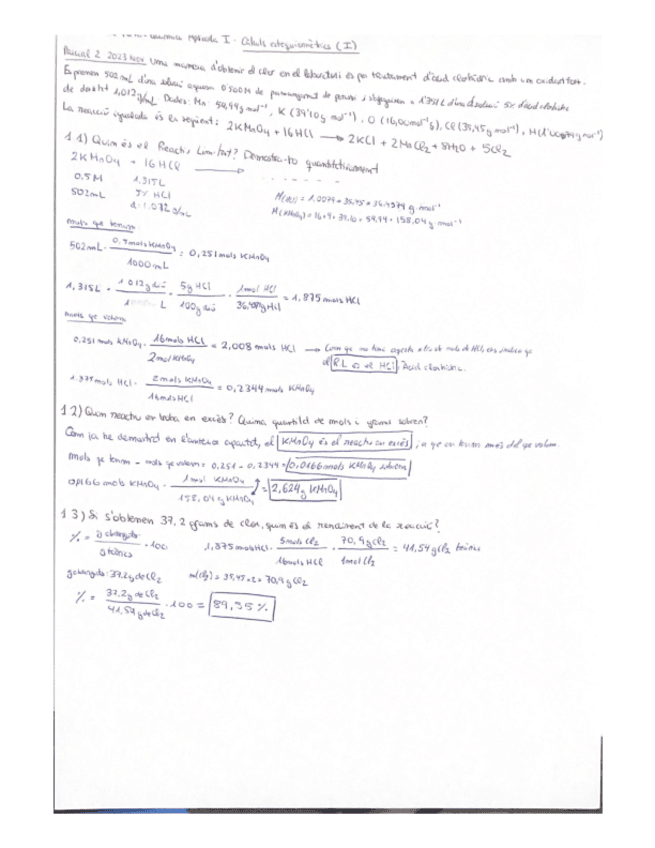 Química Aplicada I - Càlculs estequiomètrics (I)
Parcial 2 2023 Nov Una manera d'obtenir el clor en el laboratori és per tractament d'àcid clorhídric amb un oxidant fort.
Es prenen 502mL d'una solució aquosa 0'500M de permanganat de potassi i s'afegeixen 1'315L d'una dissolució 5% d'àcid clorhídric
de densitat 1,012g/mL Dades: Mn: 54,94g mol⁻¹, K (39'10g mol⁻¹), O (16,00mol⁻¹g), Cl(35,45g mol⁻¹), H(1'0079g mol⁻¹)
La reacció igualada és la següent: 2KMnO4 + 16HCl → 2KCl + 2MnCl2 + 8H2O + 5Cl2
1.1) Quin és el Reactiu Limitant? Demostra-ho quantitativament
2KMnO4 + 16HCl →
0,5M 1,315L
502mL 5% HCl
d=1,012g/mL
M(HCl) = 1,0079+35,45 = 36,4579 g·mol⁻¹
M(KMnO4) = 16·4+39,10+54,94 = 158,04g·mol⁻¹
mols que tenim
502mL · 0,5mols KMnO4 / 1000mL = 0,251mols KMnO4
1,315L · 1012g / L · 5g HCl / 100g · 1mol HCl / 36,4579g HCl = 1,875mols HCl
mols que volem
0,251 mols KMnO4 · 16mols HCl / 2mol KMnO4 = 2,008 mols HCl → Com que no tenim aquests mols de HCl
el RL és el HCl, Àcid clorhídric.
1,875mols HCl · 2mols KMnO4 / 16mols HCl = 0,2344 mols KMnO4
1.2) Quin reactiu es troba en excés? Quina quantitat de mols i grams sobren?
Com ja he demostrat en l'anterior apartat, el KMnO4 és el reactiu en excés, ja que en tenim més del que volem
mols que tenim - mols que volem = 0,251 - 0,2344 = 0,0166mols KMnO4 sobren
0,0166mols KMnO4 · 1mol KMnO4 / 158,04g KMnO4 = 2,624g KMnO4
1.3) Si s'obtenen 37,2 grams de clor, quin és el rendiment de la reacció?
% = g obtinguts / g teòrics · 100 1,875mols HCl · 5mols Cl2 / 16mols HCl · 70,9gCl2 / 1mol Cl2 = 41,54gCl2 teòrics
g obtinguts: 37,2g de Cl2 m(Cl2) = 35,45×2 = 70,9gCl2
% = 37,2g de Cl2 / 41,54g de Cl2 · 100 = 89,55%